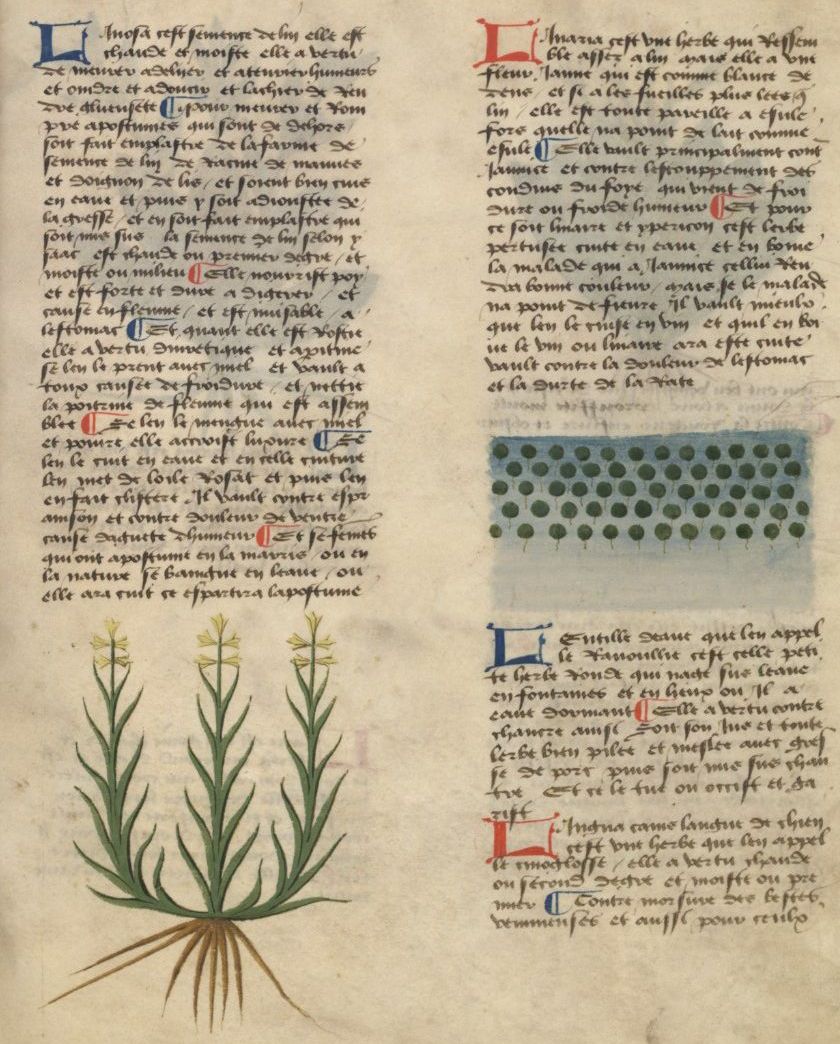 Linosa cest semence de lin elle est
chaude et moiste elle a vertu
de meurer a delyer et a tenvier humeurs
et oindre et adoucir et lachier de ten
dre glueusete ¶ pour meurer et Rom
pre apostumes qui sont de dehors
soit fait emplastre de la farine de
semence de lin de Racine de mauues
et doignon de lis / et soient bien cuis
en eaue et puis y soit adioustee de
la gresse / et en soit fait emplastre qui
soit mis sus la semence de lin selon y
saac est chaude ou premier degre / et
moiste ou milieu ¶ Elle nourrist poy
et est forte et dure a digerer / et
cause enfleume / et est nuisable / a
lestomac ¶ Et quant elle est Rostie
elle a vertu diuretique et apitiue
se len le prent auec miel et vault a
toux causee de froidure / et nettie
la poitrine de fleume qui est assem
blee ¶ Se len le mengue auec miel
et poiure elle accroist luxure ¶ Se
len le cuit en eaue et en celle cuiture
len met de loile Rosat et puis len
en fait clistere / Il vault contre espr
ainson et contre douleur de ventre
cause daguete dhumeur ¶ Et se femes
qui ont apostume en la marris / ou en
la nature se baingne en leaue / ou
elle ara cuit ce espartira lapostume
Linaria cest vne herbe qui Ressem
ble assez a lin mais elle a vne
fleur Jaune qui est comme blance de
dens / et si a les fueilles plus lees q̄
lin / elle est toute pareille a esule
fors quelle na point de lait comme
esule ¶ Elle vault principalment cont
Jaunice et contre lestouppement des
conduis du foye qui vient de froi
dure ou froide humeur ¶ Et pour
ce soit linaire et ypericon cest lerbe
pertusee cuite en eaue et en boiue
la malade qui a Jaunice cellui Ren
dra bonne couleur / mais se le malade
na point de fieure Il vault mieulx
que len le cuise en vin et quil en boi
ue le vin ou linaire ara este cuite
vault contre la douleur de lestomac
et la durte de la Rate
Lentille deaue que len appel
le Ranoullie cest celle peti
te herbe Ronde qui nage sus leaue
en fontaines et en lieux ou Il a
eaue dormant ¶ Elle a vertu contre
chancre ainsi Soit son Jus et toute
lerbe bien pilee et meslee auec gres
se de porc puis soit mis sus chan
cre Et ce le tue ou occist et ga
rist
Lingua canis langue de chien
cest vne herbe que len appel
le cinoglosse / elle a vertu chaude
ou second degre et moiste ou pre
mier ¶ Contre morsure des bestes
venimeuses et aussi pour ceulx